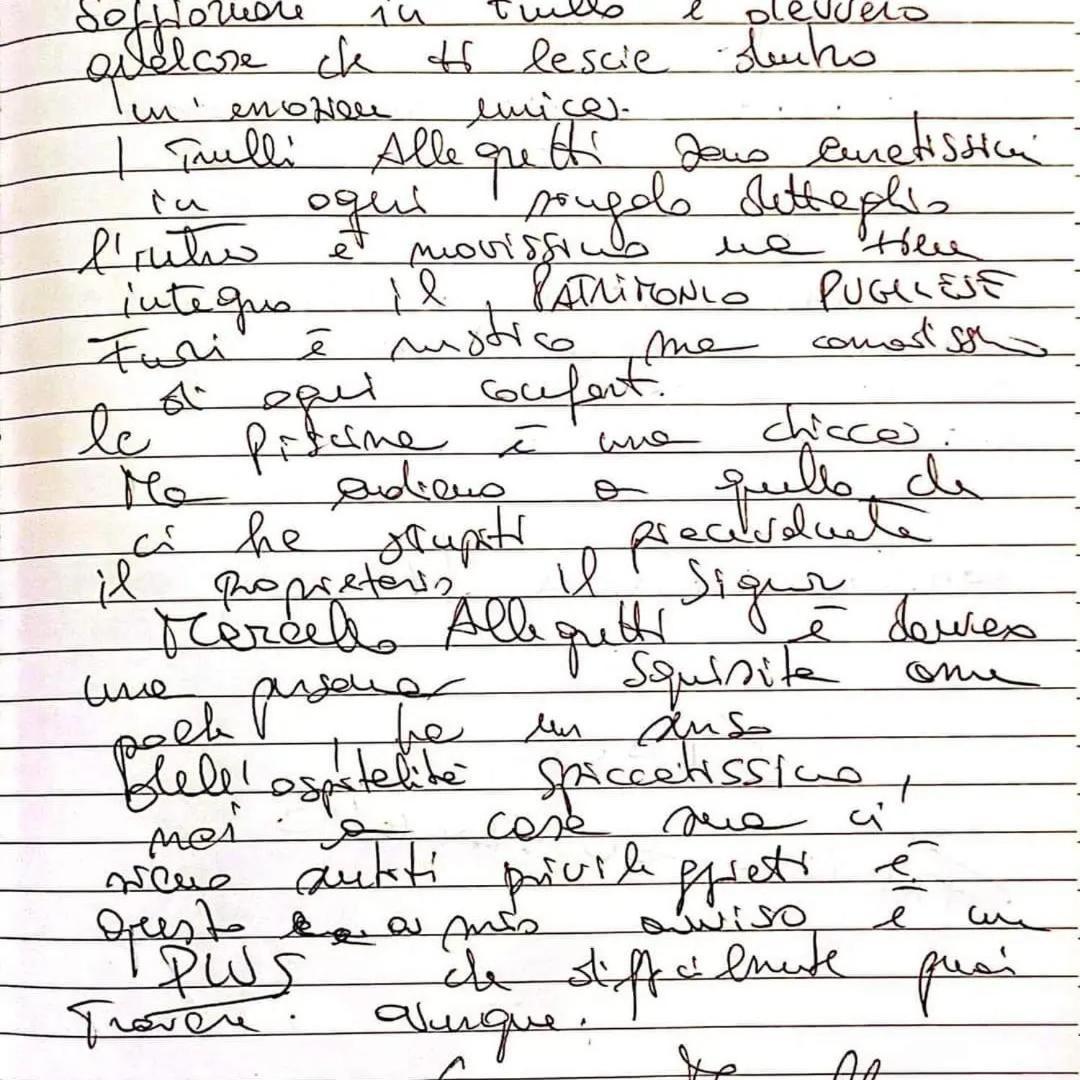 Soggiornare in Trullo è davvero
qualcosa che ti lascia dentro
un'emozione unica.
I Trulli Allegretti sono curatissimi
in ogni singolo dettaglio
l'intero è nuovissimo ma tiene
integro il PATRIMONIO PUGLIESE
Fuori è rustico, ma comodissimo
di ogni confort.
la piscina è una chicca.
Ma andiamo a quello che
ci ha stupiti precisamente
il proprietario, il Signor
Marcello Allegretti è davvero
una persona squisita come
poche, ha un senso
dell'ospitalità spiccatissimo,
noi a casa sua ci
siamo sentiti privileggiati e
questo a mio avviso è un
PLUS che difficilmente puoi
Trovare. ovunque.